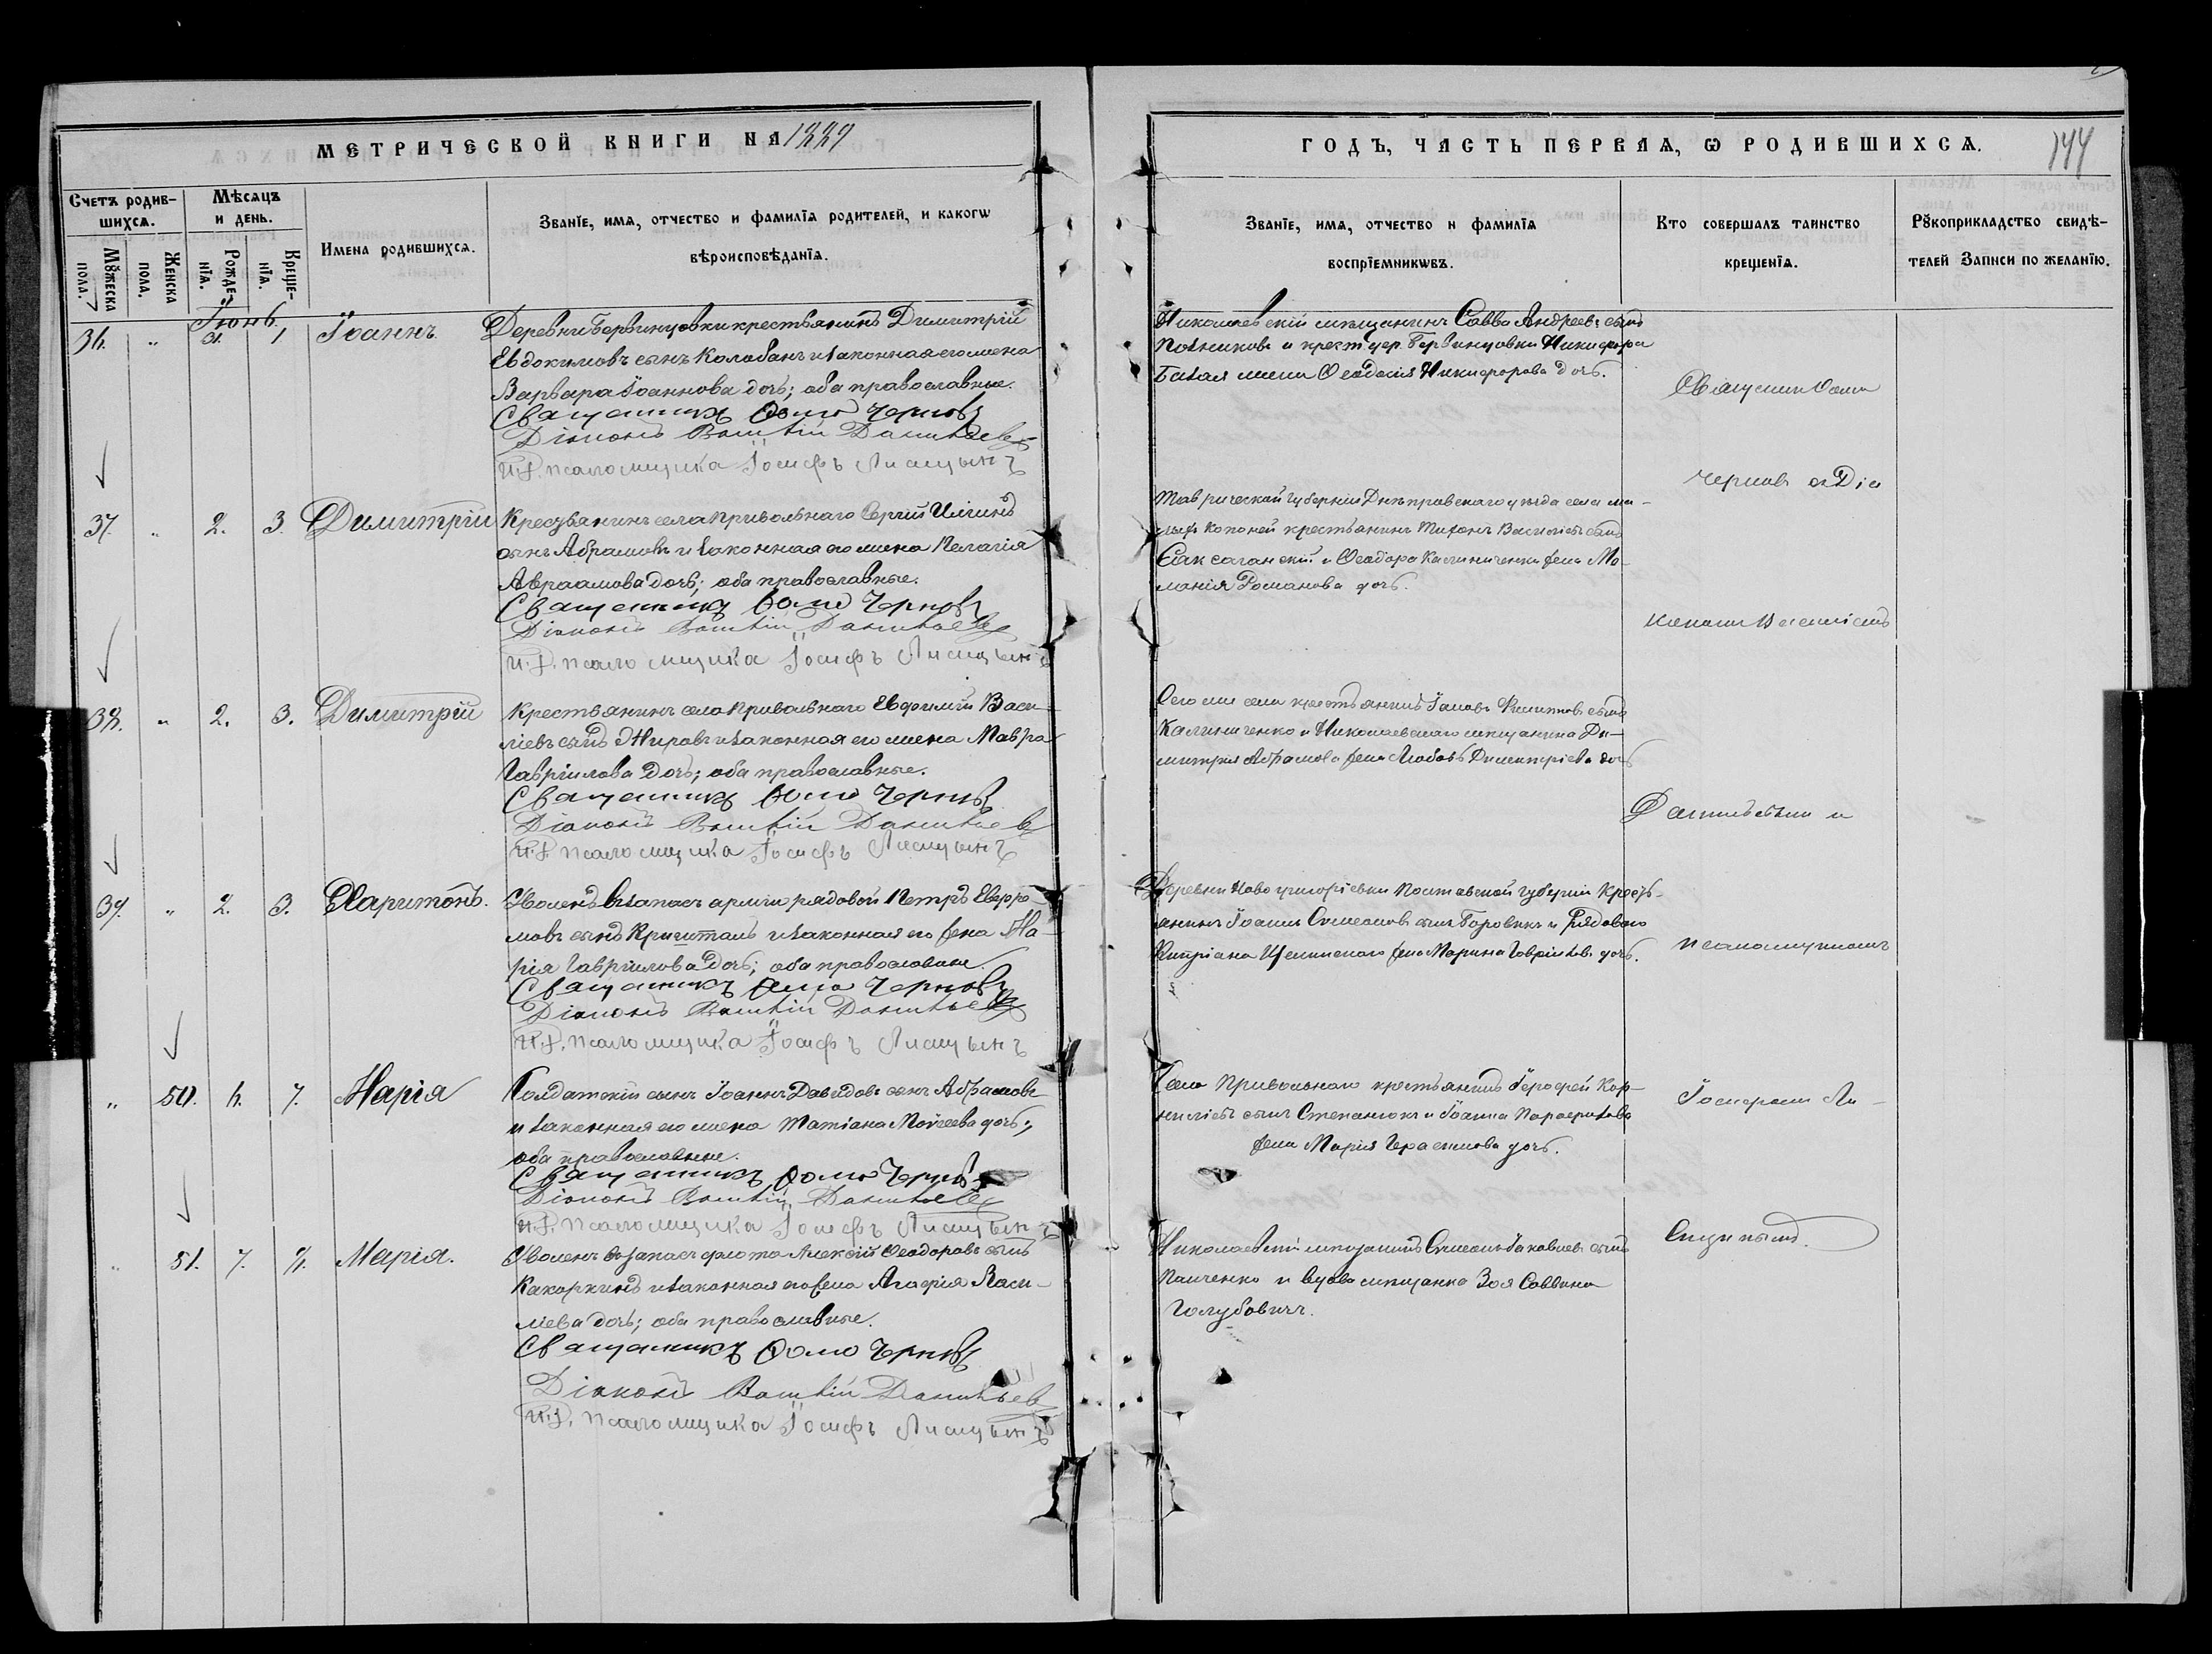 МЕТРИЧЕСКОЙ КНИГИ НА 1889
Счетъ родив-
шихся.
Мѣсяцъ
и день.
Имена родившихся.
Званїе, имя, отчество и фамилїя родителей, и какогѡ
вѣроисповѣданїя.
Мꙋжеска
пола.
Женска
пола.
Рожде-
нїя.
Креще-
нїя.
Іюнь.
36. " 31. 1 Іоаннъ. Деревни Бервинцовки крестьянинъ Димитрій
Евдокимовъ сынъ Колобанъ и законная его жена
Варвара Іоаннова дочь; оба православные.
Священникъ Ѳома Черновъ
Діаконъ Василій Данильевъ
И.д. псаломщика Іосифъ Лисицынъ
37. " 2. 3. Димитрій Крестьянинъ села Привольнаго Сергій Илїинъ
сынъ Абрамовъ и законная его жена Пелагія
Авраамова дочь; оба православные.
Священникъ Ѳома Черновъ
Діаконъ Василій Данильевъ
И.д. псаломщика Іосифъ Лисицынъ
38. " 2. 3. Димитрій Крестьянинъ села Привольнаго Евфимій Васи-
ліевъ сынъ Жировъ и законная его жена Мавра
Гавріилова дочь; оба православные.
Священникъ Ѳома Черновъ
Діаконъ Василій Данильевъ
И.д. псаломщика Іосифъ Лисицынъ
39. " 2. 3. Харитонъ. Уволенъ въ запасъ арміи рядовой Петръ Евфро-
мовъ сынъ и законная его жена Ма-
рія Гавріилова дочь; оба православные.
Священникъ Ѳома Черновъ
Діаконъ Василій Данильевъ
И.д. псаломщика Іосифъ Лисицынъ
" 50. 6. 7. Марія Солдатскій сынъ Іоаннъ Давидовъ сынъ Абрамовъ
и законная его жена Татіана Моѵсеева дочь;
оба православные.
Священникъ Ѳома Черновъ
Діаконъ Василій Данильевъ
И.д. псаломщика Іосифъ Лисицынъ
" 51. 7. 9. Марія. Уволенъ въ запасъ флота Алексій Ѳеодоровъ сынъ
Какоркинъ и законная его жена Агафія Васи-
лиева дочь; оба православные.
Священникъ Ѳома Черновъ
Діаконъ Василій Данильевъ
И.д. псаломщика Іосифъ Лисицынъ
ГОДЪ, ЧАСТЬ ПЕРВАЯ, Ѡ РОДИВШИХСЯ.
144
Званїе, имя, отчество и фамилїя
воспрїемникѡвъ.
Кто совершалъ таинство
крещенїя.
Рꙋкоприкладство свидѣ-
телей записи по желанїю.
Николаевскій мѣщанинъ Савва Андреевъ сынъ
Позниковъ и крест. дер. Бервинцовки Никифора
жены Ѳеодосія Никифорова дочь.
Священникъ Ѳома
Черновъ съ Діа
Таврической губерніи Днѣпровскаго уѣзда села ма-
лыхъ Копоней крестьянинъ Тихонъ Василіевъ сынъ
Саксаганскій и Ѳеодора Калиниченки жена Ме-
ланія Романова дочь.
кономъ Василіемъ
Сего же села крестьянинъ Іаковъ Филипповъ сынъ
Калиниченко и Николаевскаго мѣщанина Ди-
митрія Абрамова жена Любовь Димитріева дочь
Данильевымъ и
Деревни Новогригорievки Полтавской губерніи крестъ-
янинъ Іоаннъ Симеоновъ сынъ Боровикъ и рядоваго
Кипріана жена Марина Гаврілова дочь.
псаломщикомъ
Села Привольнаго крестьянинъ Іерофей Кор-
ниліевъ сынъ Степанюкъ и Іоанна
жена Марія Герасимова дочь.
Іосифомъ Ли-
Николаевскій мѣщанинъ Симеонъ Іаковлевъ сынъ
Панченко и вдова мѣщанка Зоя Саввина
Голубовичъ.
сицынымъ.